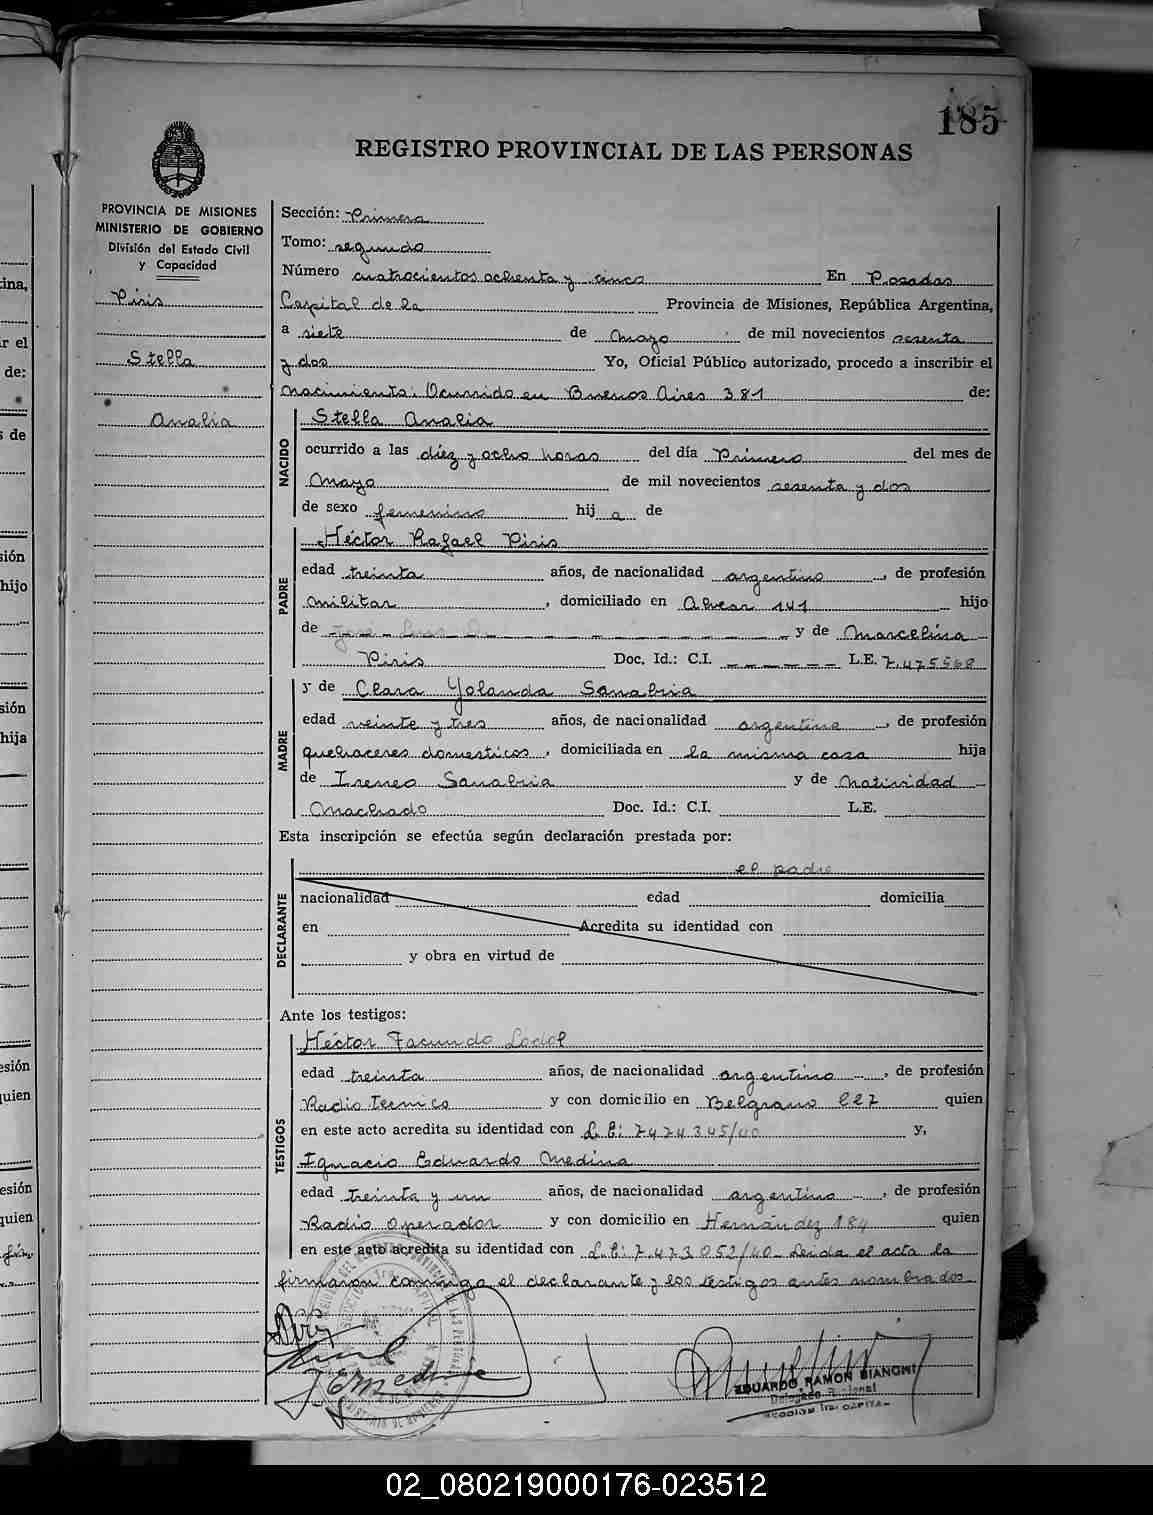 185
REGISTRO PROVINCIAL DE LAS PERSONAS
PROVINCIA DE MISIONES
MINISTERIO DE GOBIERNO
División del Estado Civil
y Capacidad
Piris
Stella
Analia
Sección: Primera
Tomo: segundo
Número cuatrocientos ochenta y cinco En Posadas
Capital de la Provincia de Misiones, República Argentina,
a siete de Mayo de mil novecientos sesenta
y dos Yo, Oficial Público autorizado, procedo a inscribir el
nacimiento: Ocurrido en Buenos Aires 381 de:
NACIDO
Stella Analia
ocurrido a las diéz y ocho horas del día Primero del mes de
Mayo de mil novecientos sesenta y dos
de sexo femenino hij a de
PADRE
Héctor Rafael Piris
edad treinta años, de nacionalidad argentino, de profesión
militar, domiciliado en Alvear 141 hijo
de y de Marcelina
Piris Doc. Id.: C.I. — — — — — — L.E. 7.475568
MADRE
y de Clara Yolanda Sanabria
edad veinte y tres años, de nacionalidad argentina, de profesión
quehaceres domesticos, domiciliada en la misma casa hija
de Ireneo Sanabria y de Natividad
Machado Doc. Id.: C.I. L.E.
Esta inscripción se efectúa según declaración prestada por:
DECLARANTE
el padre
nacionalidad edad domicilia
en Acredita su identidad con
y obra en virtud de
Ante los testigos:
TESTIGOS
Héctor Facundo
edad treinta años, de nacionalidad argentino, de profesión
Radio Tecnico y con domicilio en Belgrano 227 quien
en este acto acredita su identidad con L.E: 7474345/40 y,
Ignacio Eduardo Medina
edad treinta y un años, de nacionalidad argentino, de profesión
Radio Operador y con domicilio en Hernández 184 quien
en este acto acredita su identidad con L.E: 7.473052/40 Leida el acta la
firmaron conmigo el declarante y los testigos antes nombrados
EDUARDO RAMON BIANCHI
02_080219000176-023512